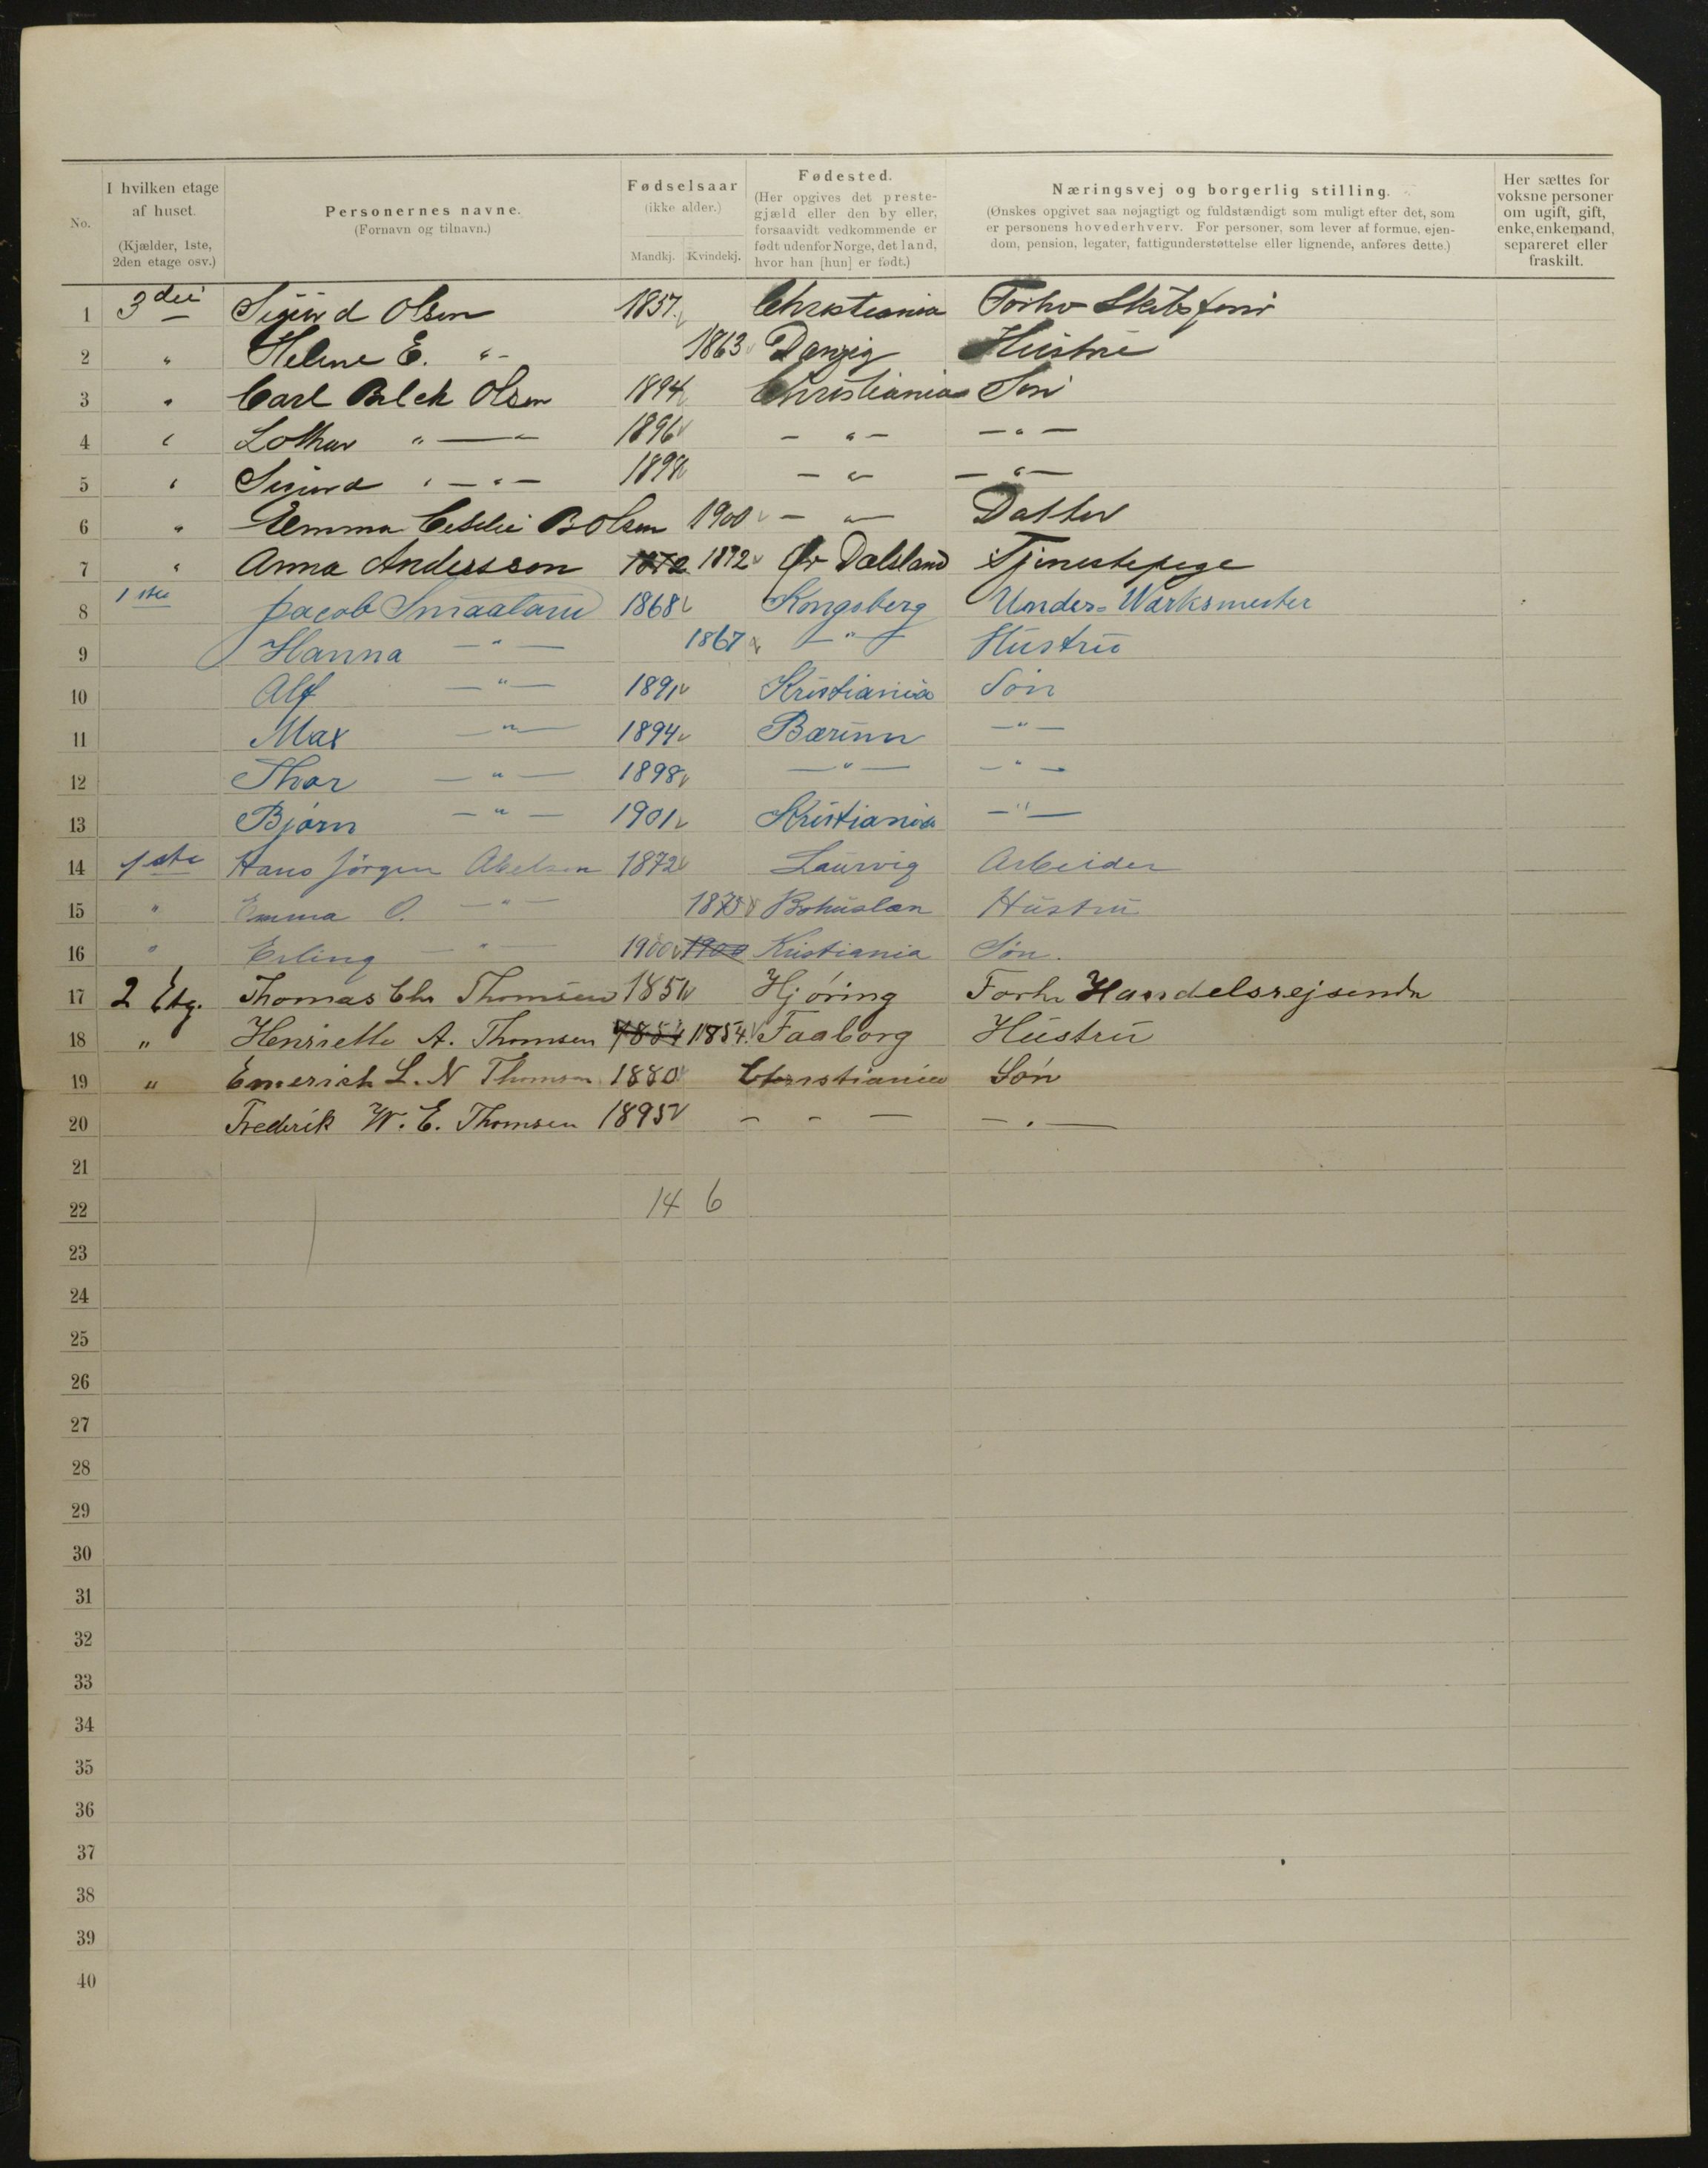 No. I hvilken etage af huset. (Kjælder, 1ste, 2den etage osv.) Personernes navne. (Fornavn og tilnavn.) Fødselsaar (ikke alder.) Mandkj. Kvindekj. Fødested. (Her opgives det prestegjæld eller den by eller, forsaavidt vedkommende er født udenfor Norge, det land, hvor han [hun] er født.) Næringsvej og borgerlig stilling. (Ønskes opgivet saa nøjagtigt og fuldstændigt som muligt efter det, som er personens hovederhverv. For personer, som lever af formue, ejendom, pension, legater, fattigunderstøttelse eller lignende, anføres dette.) Her sættes for voksne personer om ugift, gift, enke, enkemand, separeret eller fraskilt.
1 3die Sigurd Olsen 1857 Christiania
2 " Helene E. " - 1863 Danzig Hustru
3 " Carl Olsen 1894 Christiania Søn
4 " Lothar " — " 1896 - " - - " -
5 " Sigurd " - " - 1898 - " - " -
6 " Emma B Olsen 1900 - " - Datter
7 " Anna Andersson 1872 1872 Dalsland Tjenestepige
8 1ste Jacob Smaaland 1868 Kongsberg Under-Værksmester
9 Hanna - " - 1867 - " - Hustru
10 Alf - " - 1891 Kristiania Søn
11 Max - " - 1894 Bærum - " -
12 Thor - " - 1898 - " - - " -
13 Bjørn - " - 1901 Kristiania - " -
14 1ste Hans Jørgen Abelsen 1872 Laurvig Arbeider
15 " Emma O. - " - 1875 Bohuslæn Hustru
16 " Erling - " - 1900 1900 Kristiania Søn.
17 2 Etg. Thomas Chr Thomsen 1851 Hjøring Forhv Handelsrejsende
18 " Henriette A. Thomsen 1854 1854. Faaborg Hustru
19 " Emerich L. N Thomsen 1880 Christiania Søn
20 Frederik W. E. Thomsen 1895 - - - - . -
21
22 14 6
23
24
25
26
27
28
29
30
31
32
33
34
35
36
37
38
39
40